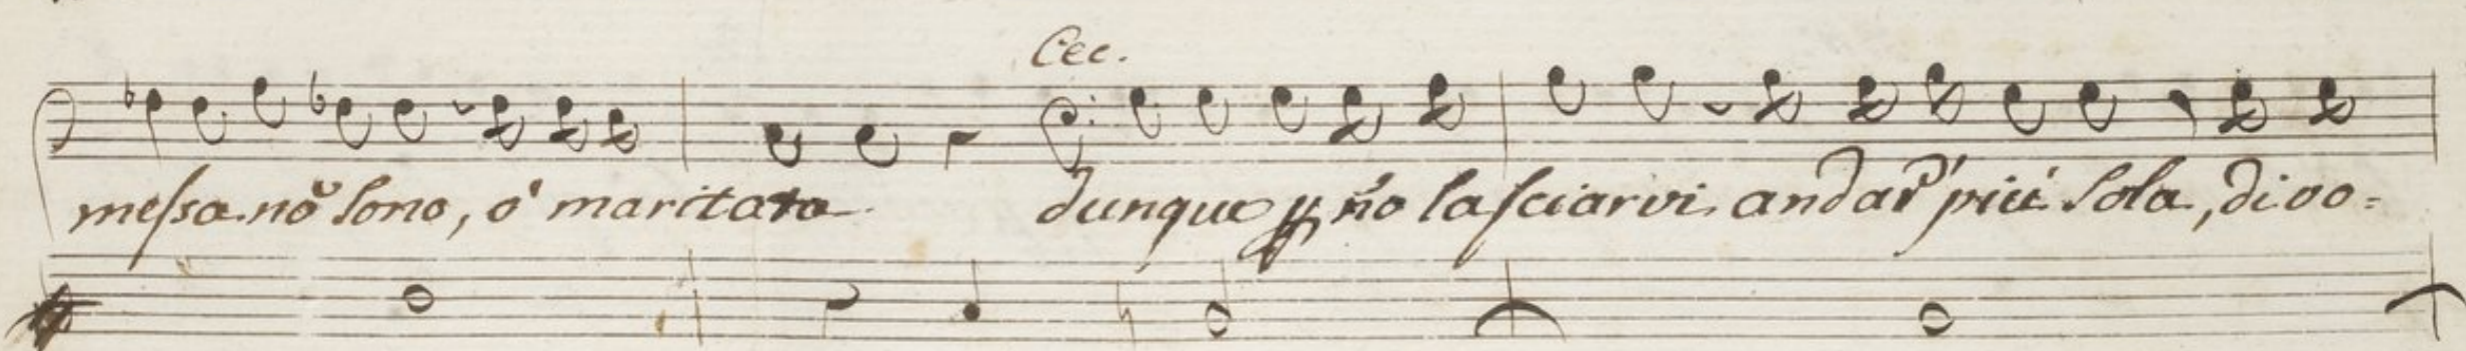 Cec.
messa nõ sono, ò maritata dunque p nõ lasciarvi andar più sola, di vo=